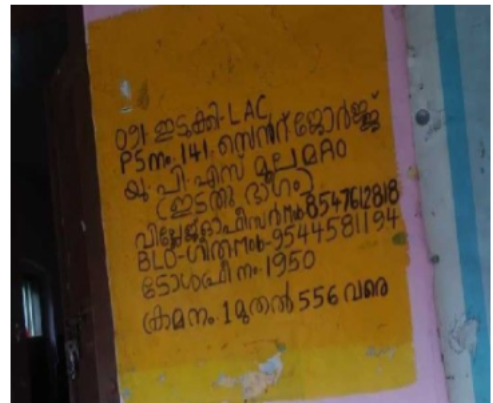 091-ഇടുക്കി-LAC
PS നം-141-സെന്റ് ജോർജ്ജ്
യു.പി.എസ് മൂലമറ്റം
(ഇടതു ഭാഗം)
വില്ലേജ് ഓഫീസർ നമ്പർ 8547612818
BLO-ഗീത നമ്പർ-9544581194
ടോൾഫ്രീ നം-1950
ക്രമനം. 1 മുതൽ 556 വരെ